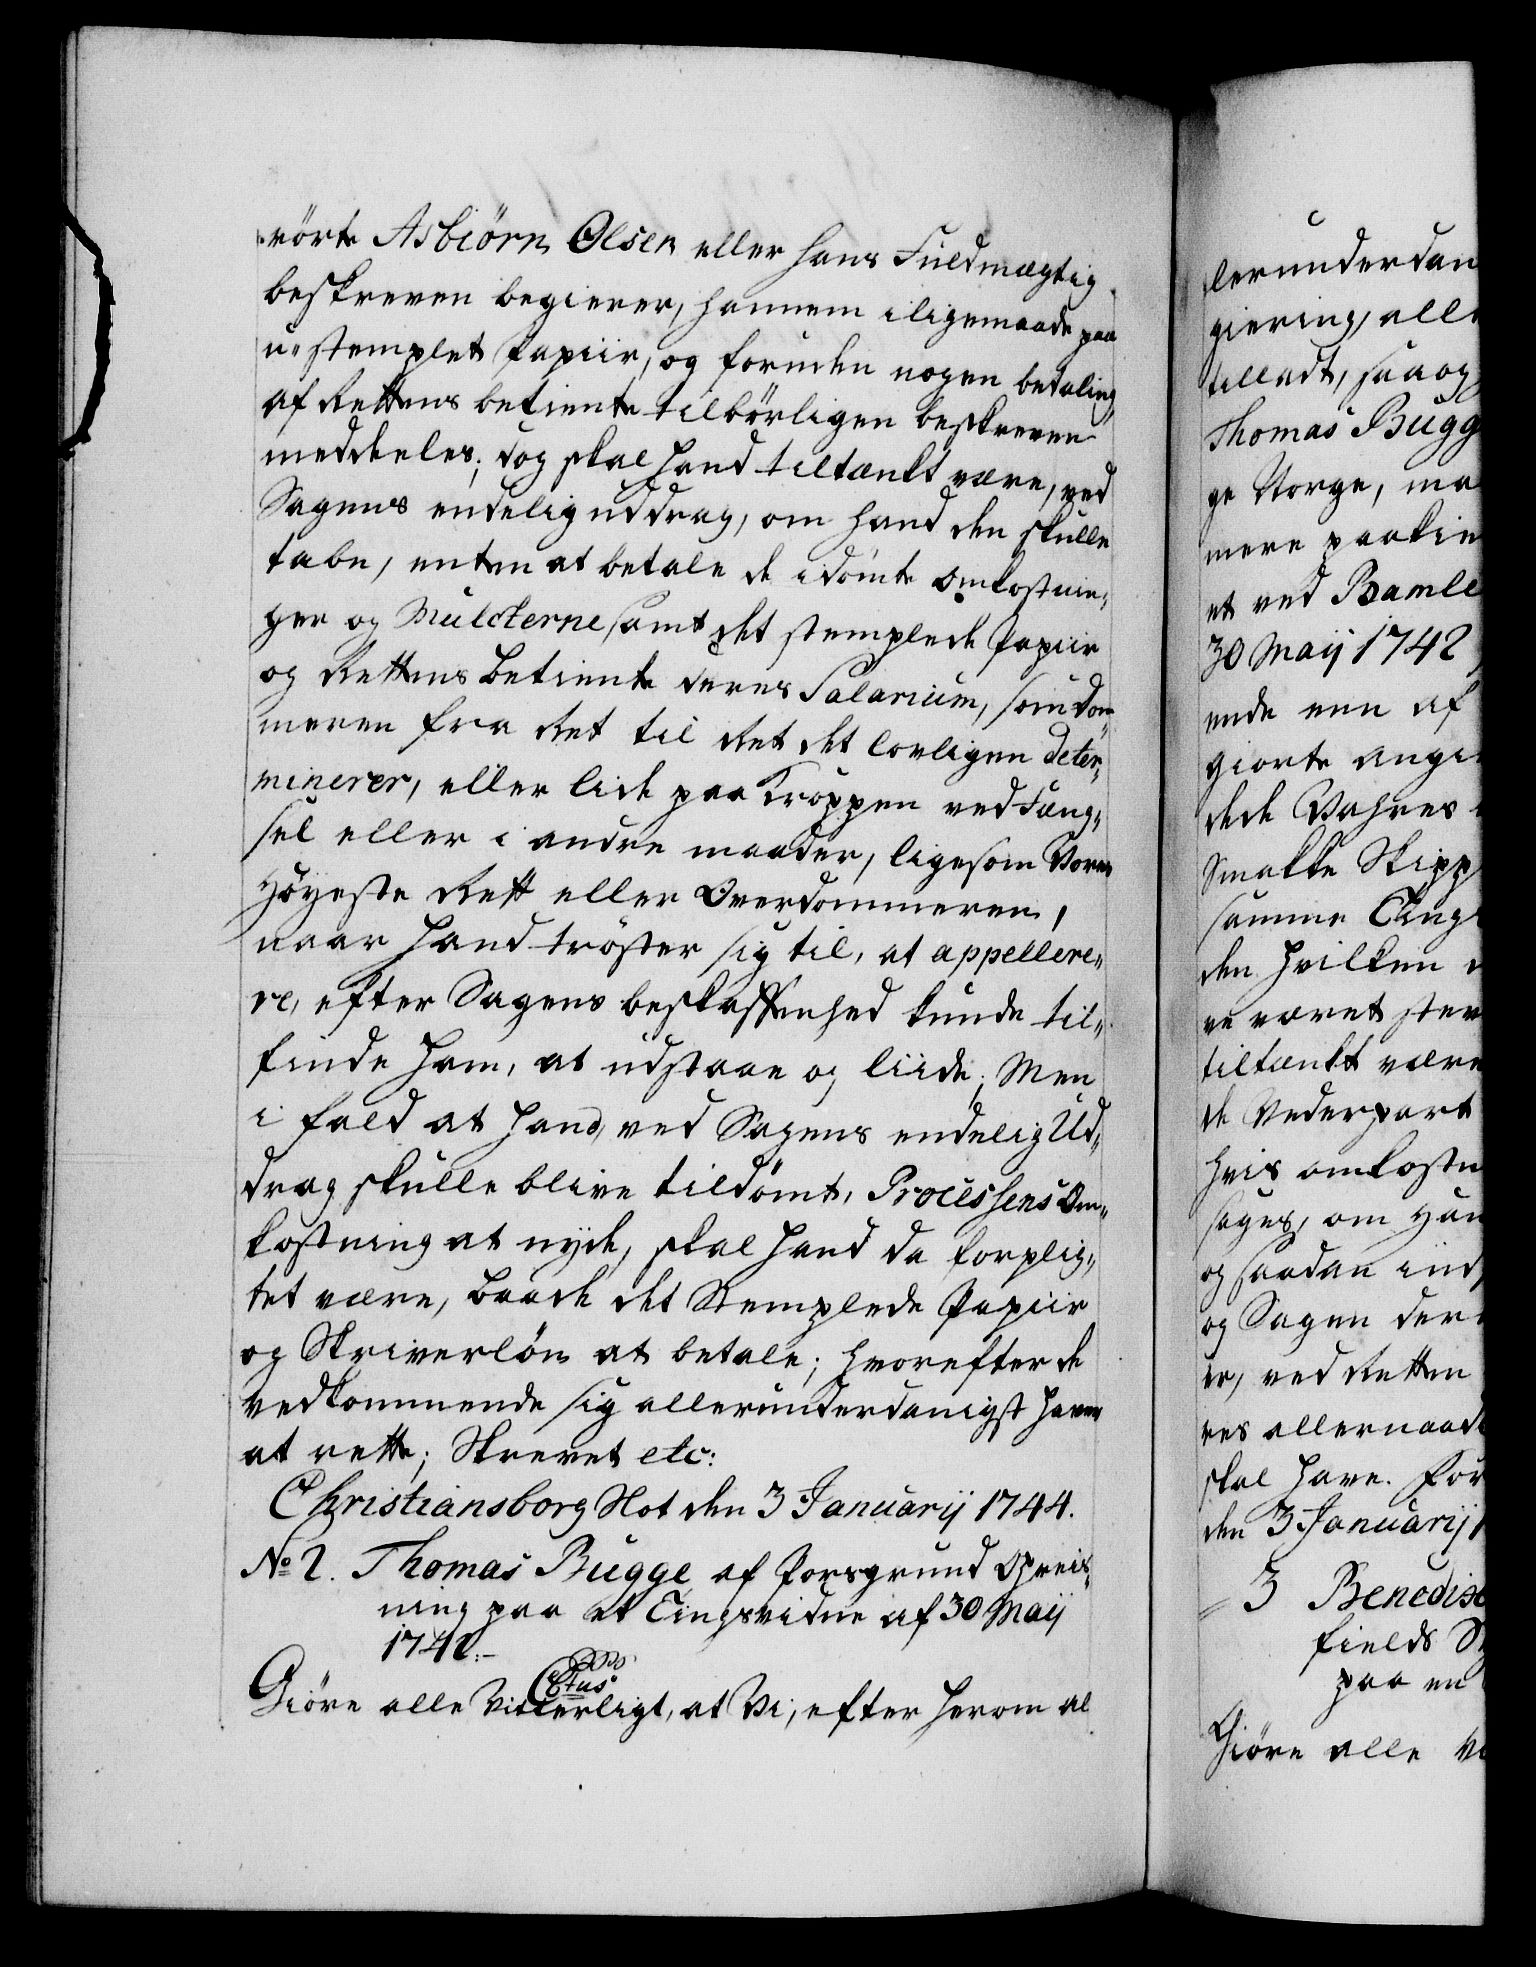 rörte Asbiörn Olsen eller hans Fuldmægtig
beskreven begierer, hannem iligemaade paa
u-stemplet Papiir, og foruden nogen betaling
af Rettens betiente tilbörligen beskreven
meddeeles; dog skal hand tiltænkt være, ved
Sagens endelig uddrag, om hand den skulle
tabe, enten at betale de idömte Omkostnin-
ger og Mulcterne, samt det stemplede Papiir
og Rettens Betiente deres Salarium, som dom-
meren fra Ret til Ret det lovligen deter-
minerer, eller lide paa Kroppen ved Fæng-
sel eller i andre maader, ligesom Vores
Höyeste Rett eller Overdommeren,
naar hand tröster sig til, at appellere-
re, efter Sagens beskaffenhed kunde til-
finde ham, at udstaae og liide; Men
i fald at hand, ved Sagens endelig Ud-
drag skulle blive tildömt, Processens Om-
kostning at nyde, skal hand da forplig-
tet være, baade det Stemplede Papiir
og Skriverlön at betale; hvorefter de
vedkommende sig allerunderdanigst haver
at rette; Skrevet etc:
Christiansborg Slot den 3 Januarij 1744.
No 2. Thomas Bugge af Porsgrund Opreis-
ning paa et Tingsvidne af 30 Maij
1742.-
Ctus
Giöre alle Vitterligt, at Vi, efter herom al
lerunderdan
giering, alle
tilladt, saa og
Thomas Bugg
ge Norge, ma
mere paakie
et ved Bamle
30 Maij 1742
ende een af
giorte angi
dede Vahres
Smakke Skipp
samme Ting
den hvilken
ve været stev
tiltænkt være
de Vederpart
hvis omkostn
sages, om Han
og saadan ind
og Sagen der
er, ved Retten
res allernaad
skal have. For
den 3 Januarij 1
3 Benedict
fields
paa en
Giöre alle Vi